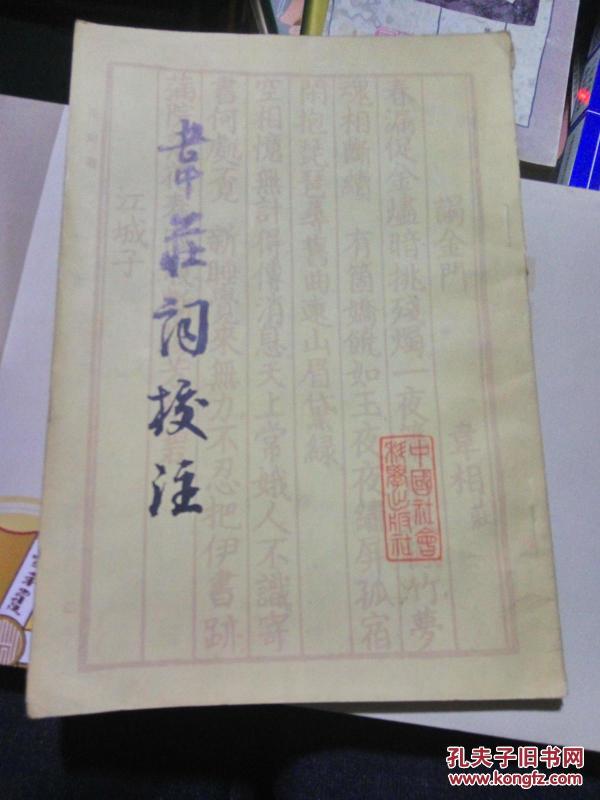 韋莊詞校注
謁金門
韋相莊
春漏促金爐暗挑殘燭一夜
竹夢
魂相斷續 有箇嬌饒如玉夜夜繡屏孤宿
閑抱琵琶尋舊曲遠山眉黛綠
空相憶無計得傳消息天上常娥人不識寄
書何處覓 新睡覺來無力不忍把伊書跡
滿院
江城子
中國社會
科學出版社
孔夫子旧书网
www.kongfz.com